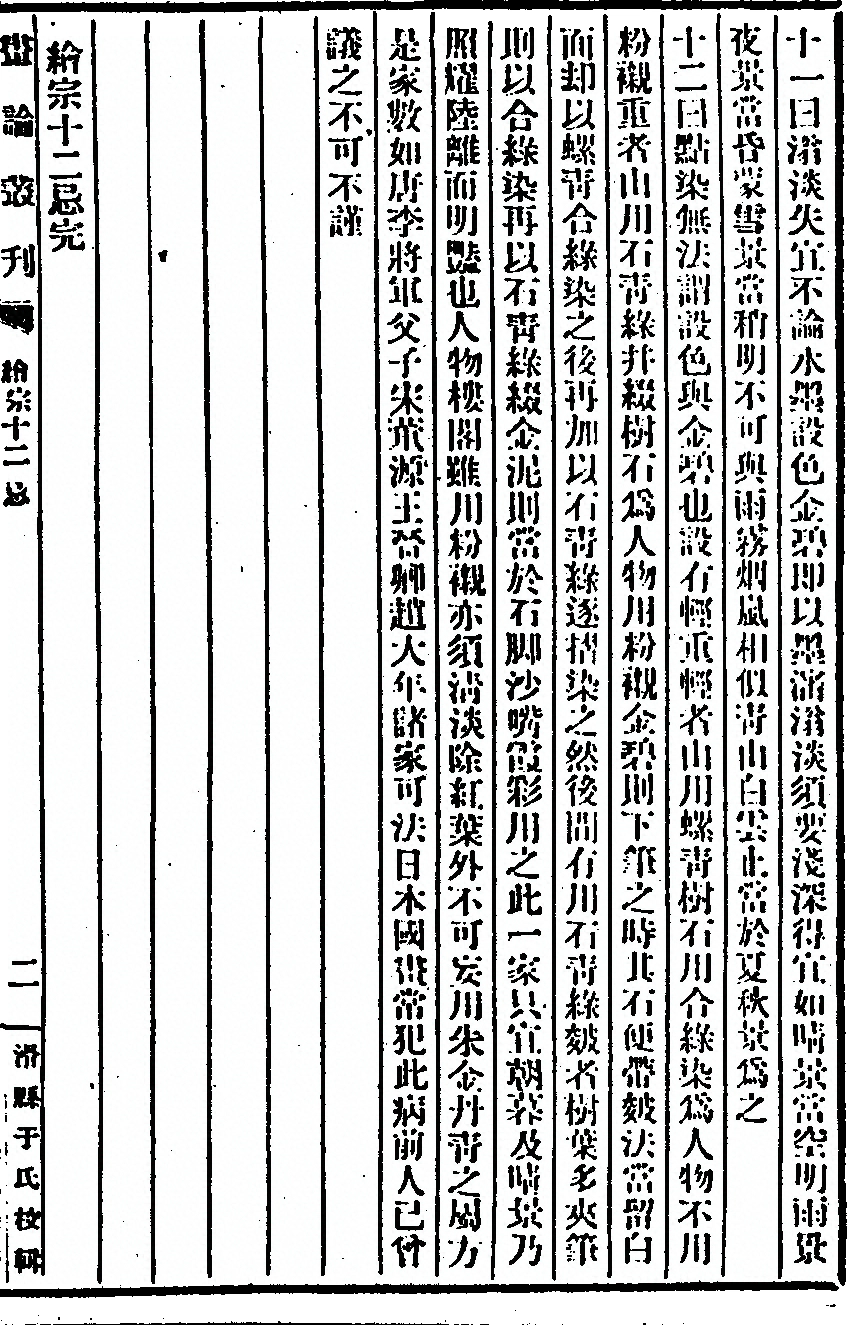 十一曰滃淡失宜不論水墨設色金碧即以墨瀋滃淡須要淺深得宜如晴景當空明雨景
夜景當昏蒙雪景當稍明不可與雨霧烟嵐相似靑山白雲止當於夏秋景爲之
十二曰點染無法謂設色與金碧也設有輕重輕者山用螺靑樹石用合綠染爲人物不用
粉襯重者山用石靑綠并綴樹石爲人物用粉襯金碧則下筆之時其石便帶皴法當留白
面却以螺靑合綠染之後再加以石靑綠逐摺染之然後間有用石靑綠皴者樹葉多夾筆
則以合綠染再以石靑綠綴金泥則當於石脚沙嘴霞彩用之此一家只宜朝暮及晴景乃
照耀陸離而明豔也人物樓閣雖用粉襯亦須淸淡除紅葉外不可妄用朱金丹靑之屬方
是家數如唐李將軍父子宋董源王晉卿趙大年諸家可法日本國畫當犯此病前人已曾
議之不可不謹
繪宗十二忌完
畫論叢刊
繪宗十二忌
二
滑縣于氏校輯